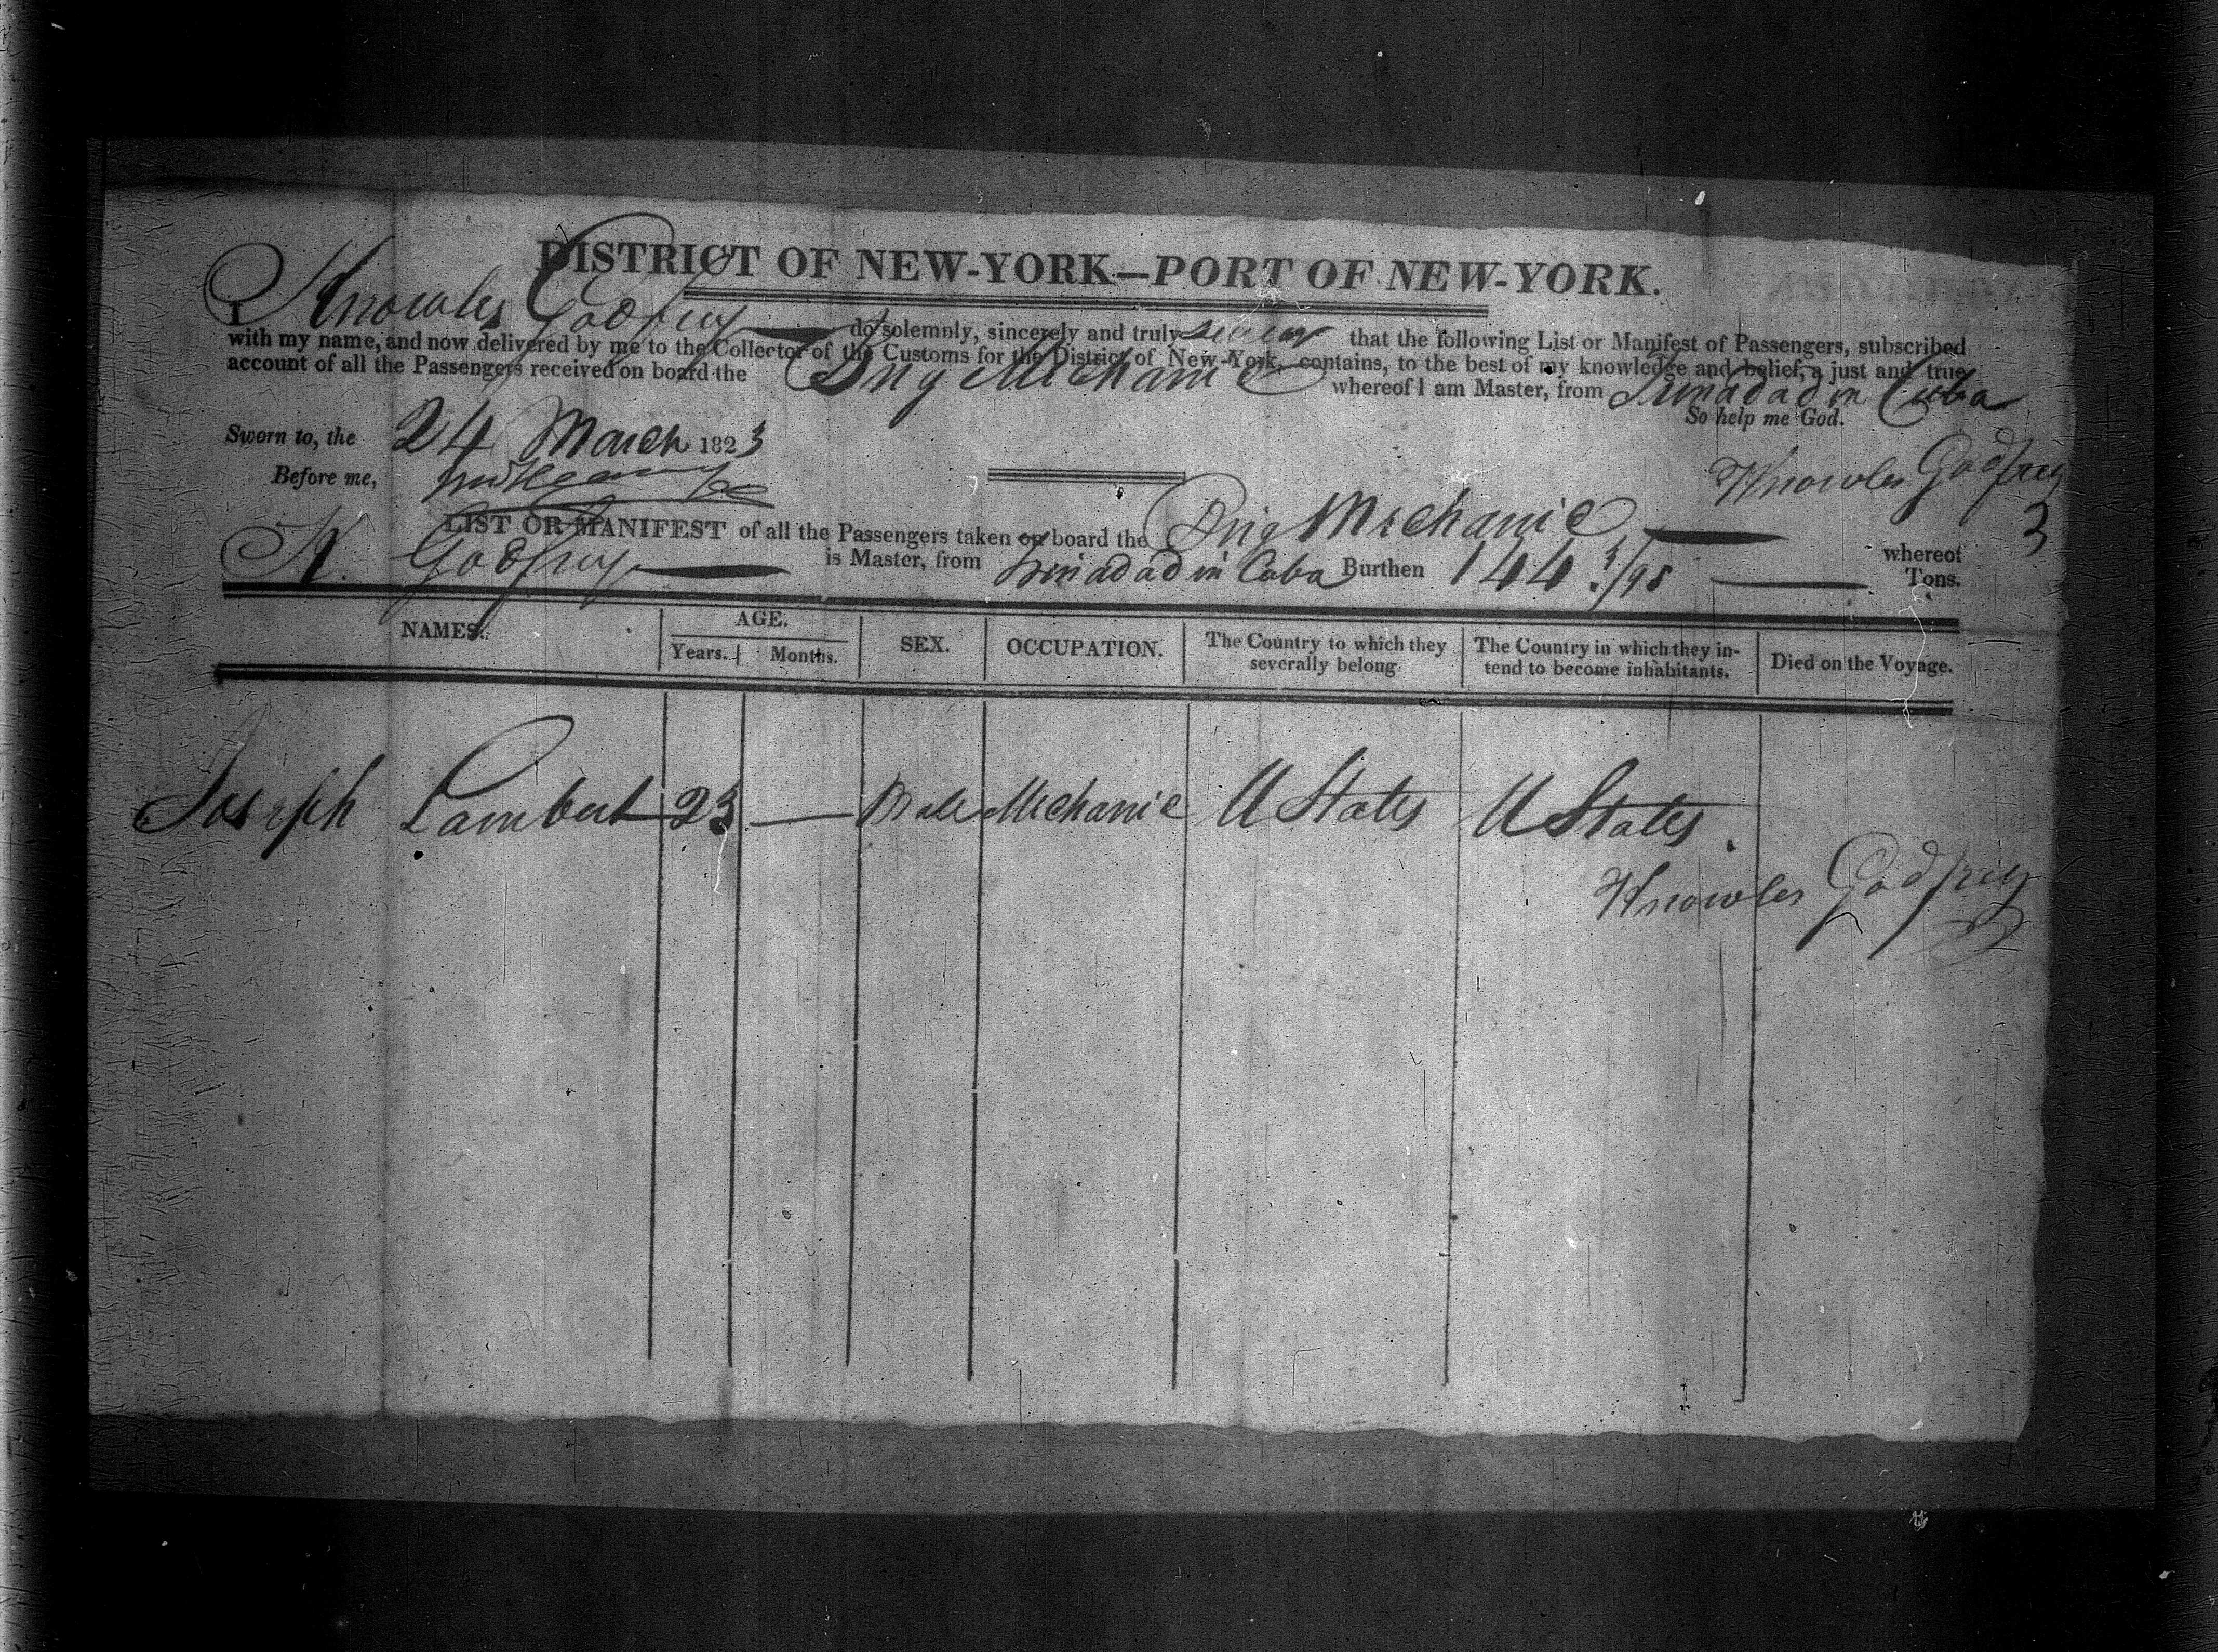 DISTRICT OF NEW-YORK—PORT OF NEW-YORK.
I Knowles Godfrey do solemnly, sincerely and truly swear that the following List or Manifest of Passengers, subscribed
with my name, and now delivered by me to the Collector of the Customs for the District of New-York, contains, to the best of my knowledge and belief, a just and true
account of all the Passengers received on board the Brig Mechanic whereof I am Master, from Trinadad in Cuba
So help me God.
Sworn to, the 24 March 1823
Before me,
Knowles Godfrey
3
LIST OR MANIFEST of all the Passengers taken on board the Brig Mechanic whereof
K. Godfrey is Master, from Trinadad in Cuba Burthen 144 /95 Tons.
NAMES. AGE. Years. Months. SEX. OCCUPATION. The Country to which they severally belong. The Country in which they intend to become inhabitants. Died on the Voyage.
Joseph Lambert 23 — Male Mechanic U States U States.
Knowles Godfrey